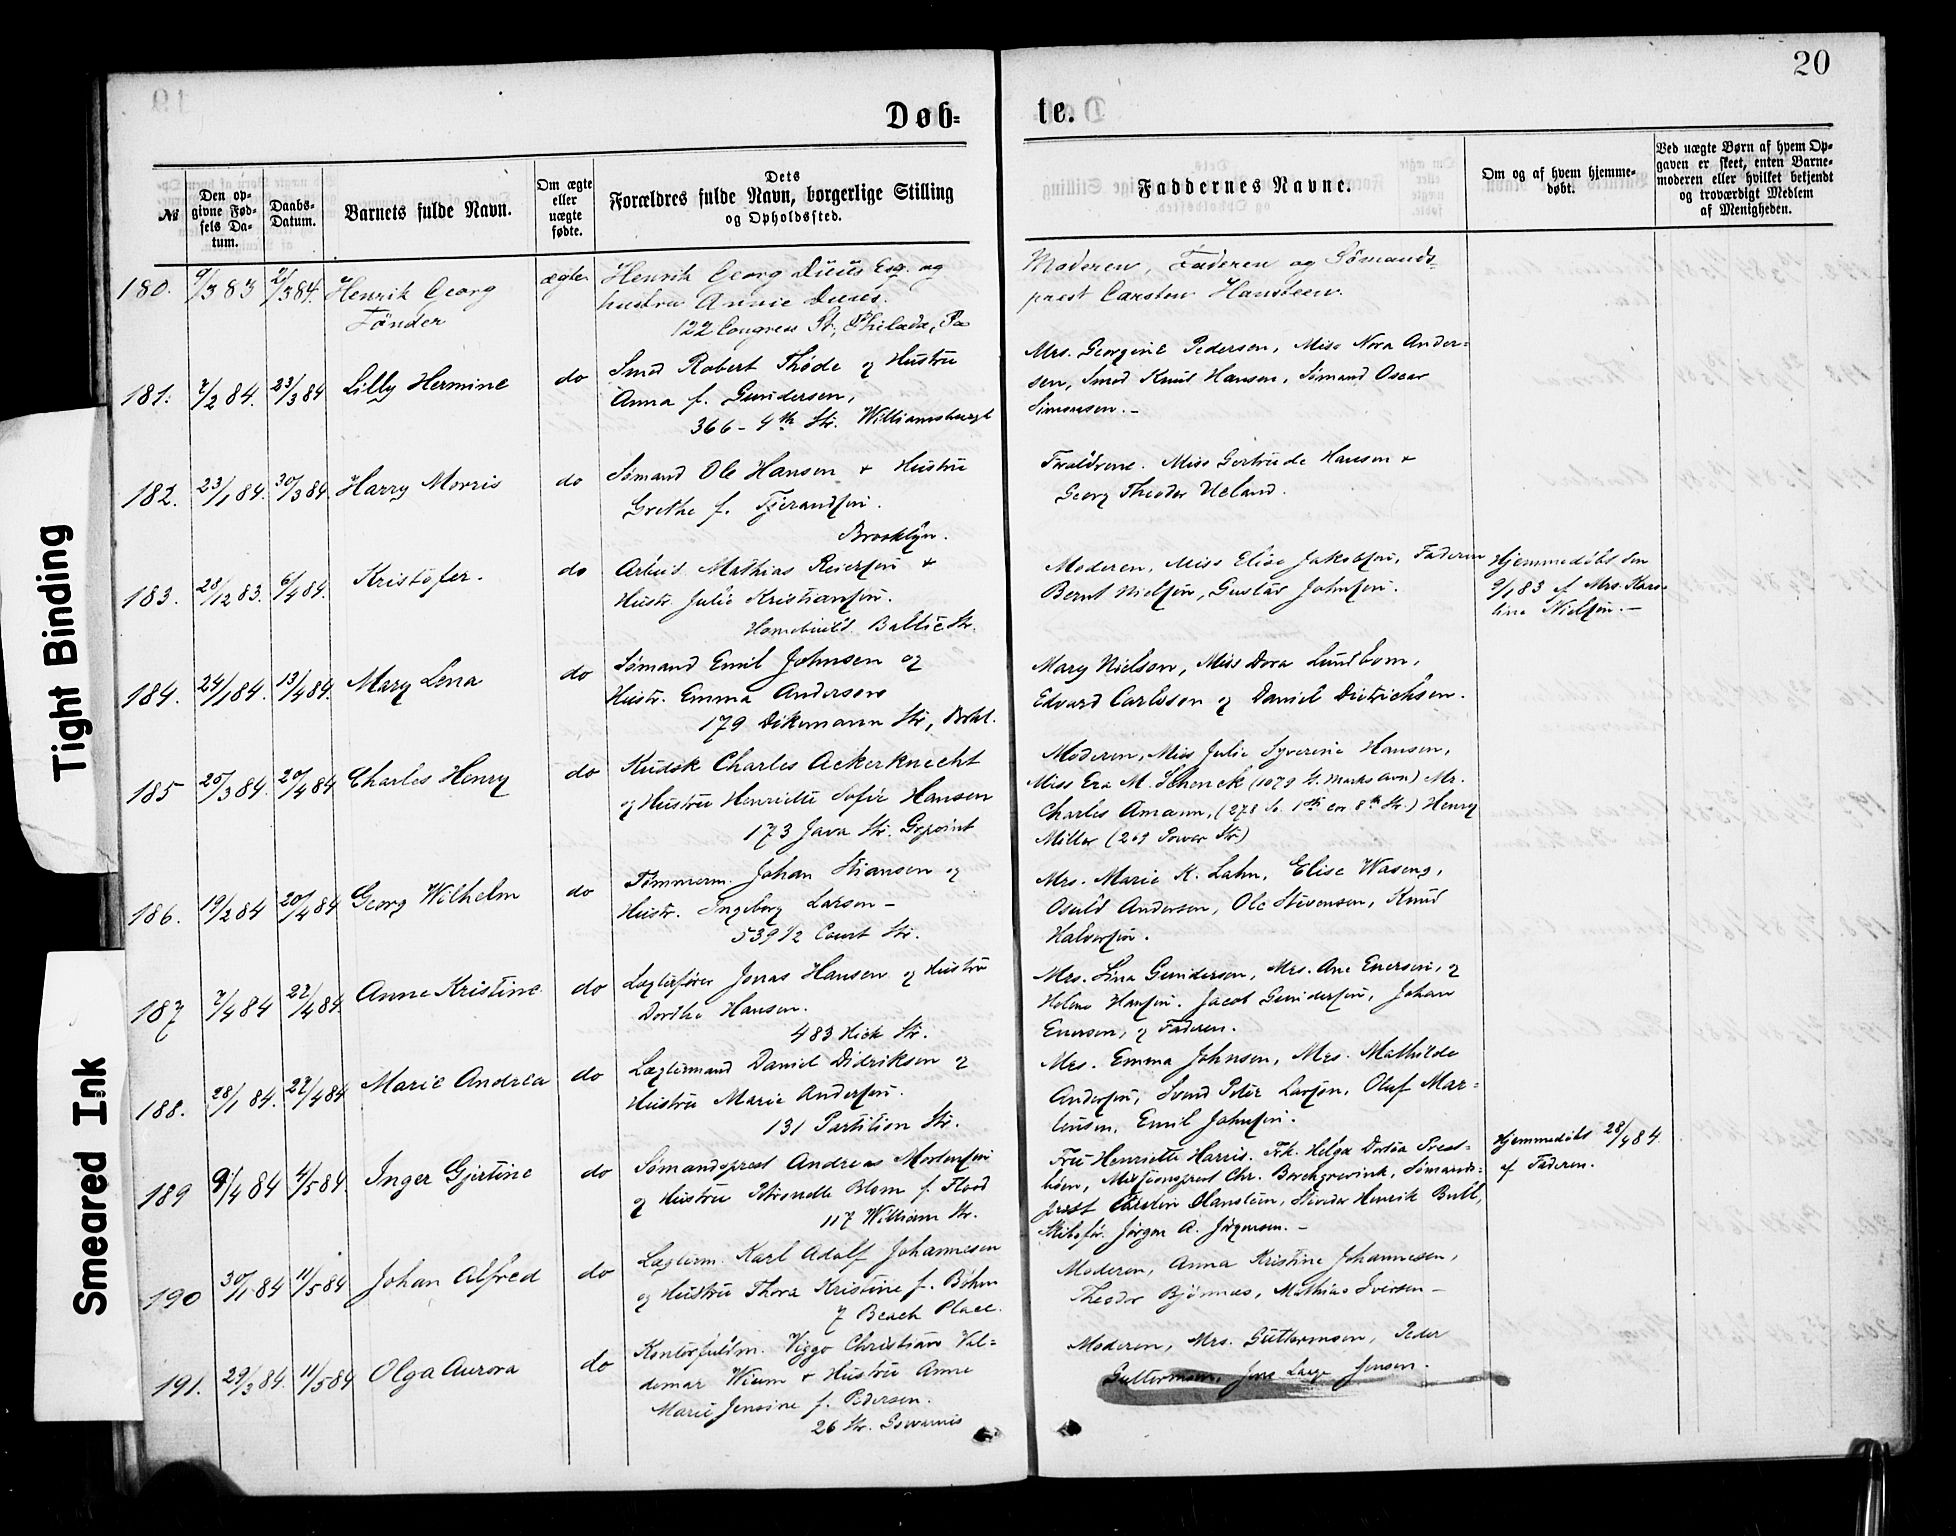 20
Døb=
te.
№
Den op-
givne Fød-
sels Da-
tum.
Daabs-
Datum.
Barnets fulde Navn.
Om ægte
eller
uægte
fødte.
Dets
Forældres fulde Navn, borgerlige Stilling
og Opholdssted.
Faddernes Navne.
Om og af hvem hjemme-
døbt.
Ved uægte Børn af hvem Op-
gaven er skeet, enten Barne-
moderen eller hvilket betjendt
og troværdigt Medlem
af Menigheden.
180. 9/3 83 2/3 84. Henrik Georg
Tønder
ægte
Henrik Georg Duus Esq. og
hustru Annie Duus.
122 Congress St, Philada, Pa
Moderen, Faderen og Sømands-
prest Carsten Hansteen.
181. 7/2 84. 23/3 84 Lilly Hermine do
Smed Robert Thøde og Hustru
Anna f. Gundersen,
366 - 4th Str. Williamsburgh
Mrs. Georgine Pedersen, Miss Nora Ander-
sen, Smed Knud Hansen, Sømand Oscar
Simonsen. -
182. 23/1 84. 30/3 84 Harry Morris do
Sømand Ole Hansen + Hustru
Grethe f. Tjerandsen.
Brooklyn.
Forældrene. Miss Gertrude Hansen +
Georg Theodor Ueland.
183. 28/12 83. 6/4 84. Kristofer. do
Arbeid. Mathias Reiersen +
Hustr. Julie Kristiansen.
Baltic Str.
Moderen, Miss Elise Jakobsen, Faderen
Bernt Nielsen, Gustav Johnsen.
Hjemmedøbt den
9/1 83 af Mrs. Karo-
line Nielsen. -
184. 24/1 84. 13/4 84. Mary Lena do
Sømand Emil Johnsen og
Hustr. Emma Andersens
179 Dikemann Str, Brkl.
Mary Nielson, Miss Dora Lundbom,
Edvard Carlsson og Daniel Dietrichsen.
185 25/3 84. 20/4 84 Charles Henry do
Kudsk Charles Ackerknecht
og Hustru Henriette Sofie Hansen
173 Java Str. Grpoint
Moderen, Miss Julie Syverine Hansen,
Miss Eva M. Schenck (1079 G. Marks Avn) Mr.
Charles Amann, (278 So. 1st cor 8th Str.) Henry
Miller (209 Power Str)
186. 19/2 84 20/4 84 Georg Wilhelm do
Tømmerm. Johan Stiansen og
Hustr. Ingeborg Larsen -
539 1/2 Court Str.
Mrs. Marie K. Lahn, Elise Waseng,
Osuld Andersen, Ole Stevensen, Knud
Halvorsen.
187 7/4 84 27/4 84. Anne Kristine do
Lægterfører Jonas Hansen og Hustru
Dorthe Hansen.
483 Hick Str.
Mrs. Lina Gundersen, Mrs. Ane Enersen, og
Helene Hansen. Jacob Gundersen, Johan
Enersen, og Faderen.
188. 28/1 84. 27/4 84 Marie Andrea do
Lægtermand Daniel Didriksen og
Hustru Marie Andersen.
131 Partition Str.
Mrs. Emma Johnsen, Mrs. Mathilde
Andersen, Svend Peter Larsen, Oluf Mar-
tinsen, Emil Johnsen.
189 9/4 84 4/5 84. Inger Gjertine do
Sømandsprest Andreas Mortensen
og Hustru Petronelle Blom f. Flood
117 William Str.
Fru Henriette Harris. Frk. Helga Dorothea Prest-
høen, Missionsprest Chr. Borchgrevink, Sømands-
prest Carsten Hansteen, Stevedor Henrik Bull,
Skibsfør. Jørgen A. Jørgensen. -
Hjemmedøbt 28/4 84.
af Faderen.
190 30/1 84 11/5 84 Johan Alfred do
Lægterm. Karl Adolf Johannesen
og Hustru Thora Kristine f. Bøhm
7 Beach Place.
Moderen, Anna Kristine Johannesen,
Theodor Bjønnes, Mathias Iversen -
191. 29/3 84. 11/5 84 Olga Aurora do
Kontorfuldm. Viggo Christian Val-
demar Wium + Hustru Anne
Marie Jensine f. Pedersen.
26 Str. Gowannis
Moderen, Mrs. Guttormsen, Peder
Guttormsen, Jens Lauge Jensen.
Tight Binding
Smeared Ink